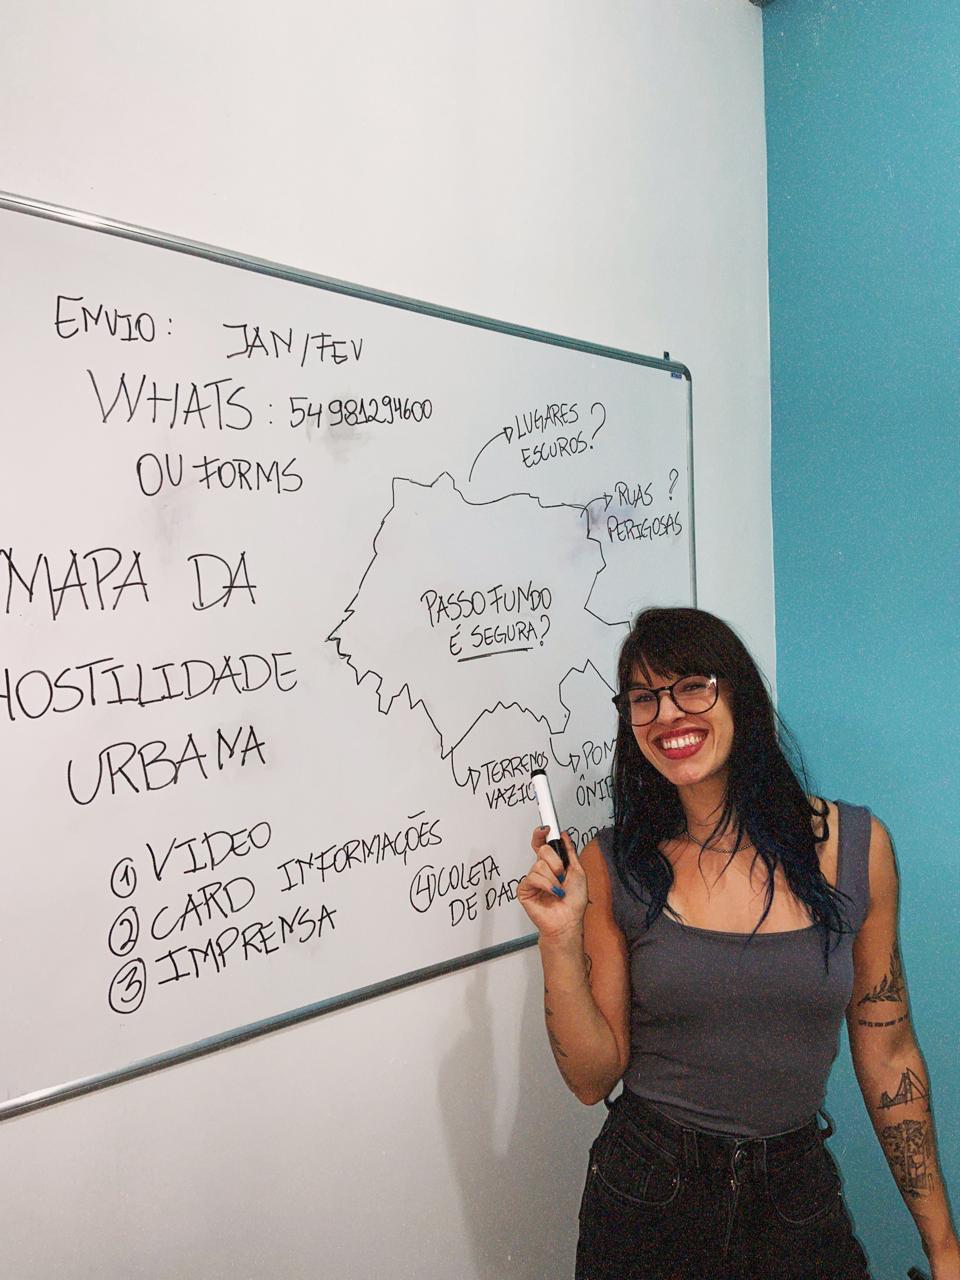 ENVIO: JAN/FEV
WHATS: 54 981294600
OU FORMS
MAPA DA
HOSTILIDADE
URBANA
① VIDEO
② CARD INFORMAÇÕES
③ IMPRENSA
④ COLETA
DE DADO
LUGARES
ESCUROS?
RUAS ?
PERIGOSAS
PASSO FUNDO
É SEGURA?
TERRENOS
VAZIO
PON
ÔNIB